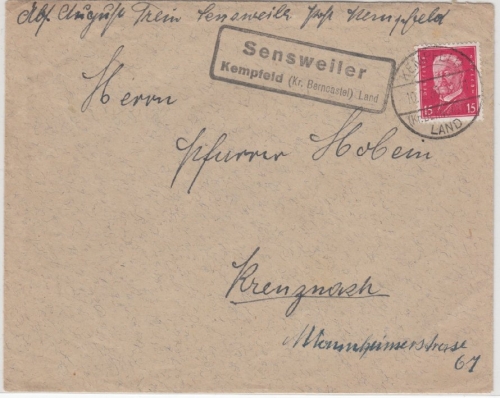 Abs. August Trein Sensweiler Post Kempfeld
Sensweiler
Kempfeld (Kr. Berncastel) Land
15 15
LAND
Herrn
Pfarrer Hobein
Kreuznach
Mannheimerstrasse
67